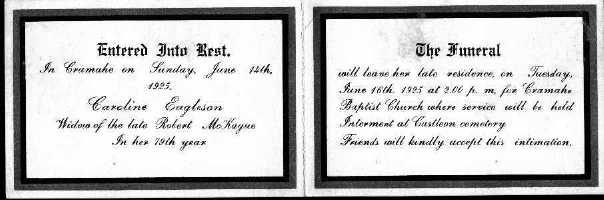 Entered Into Rest.
In Cramahe on Sunday, June 14th,
1925.
Caroline Eagleson
Widow of the late Robert McKague
In her 79th year
The Funeral
will leave her late residence, on Tuesday,
June 16th, 1925 at 2.00 p. m. for Cramahe
Baptist Church where service will be held
Interment at Castleon cemetery
Friends will kindly accept this intimation.